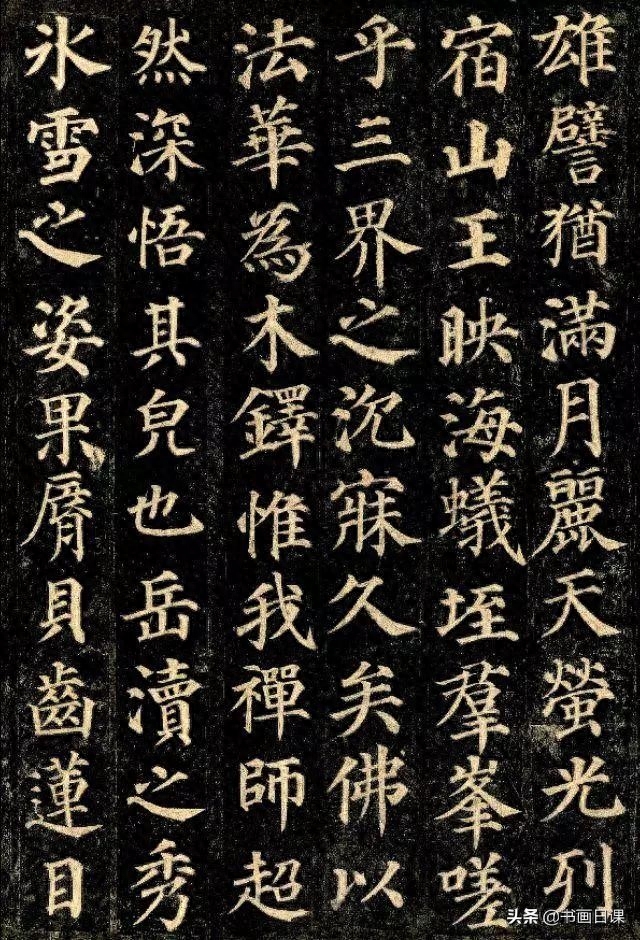 雄譬猶滿月麗天螢光列
宿山王映海蟻垤羣峯嗟
乎三界之沉寐久矣佛以
法華為木鐸惟我禪師超
然深悟其皃也岳瀆之秀
氷雪之姿果脣貝齒蓮目
头条@书画日课